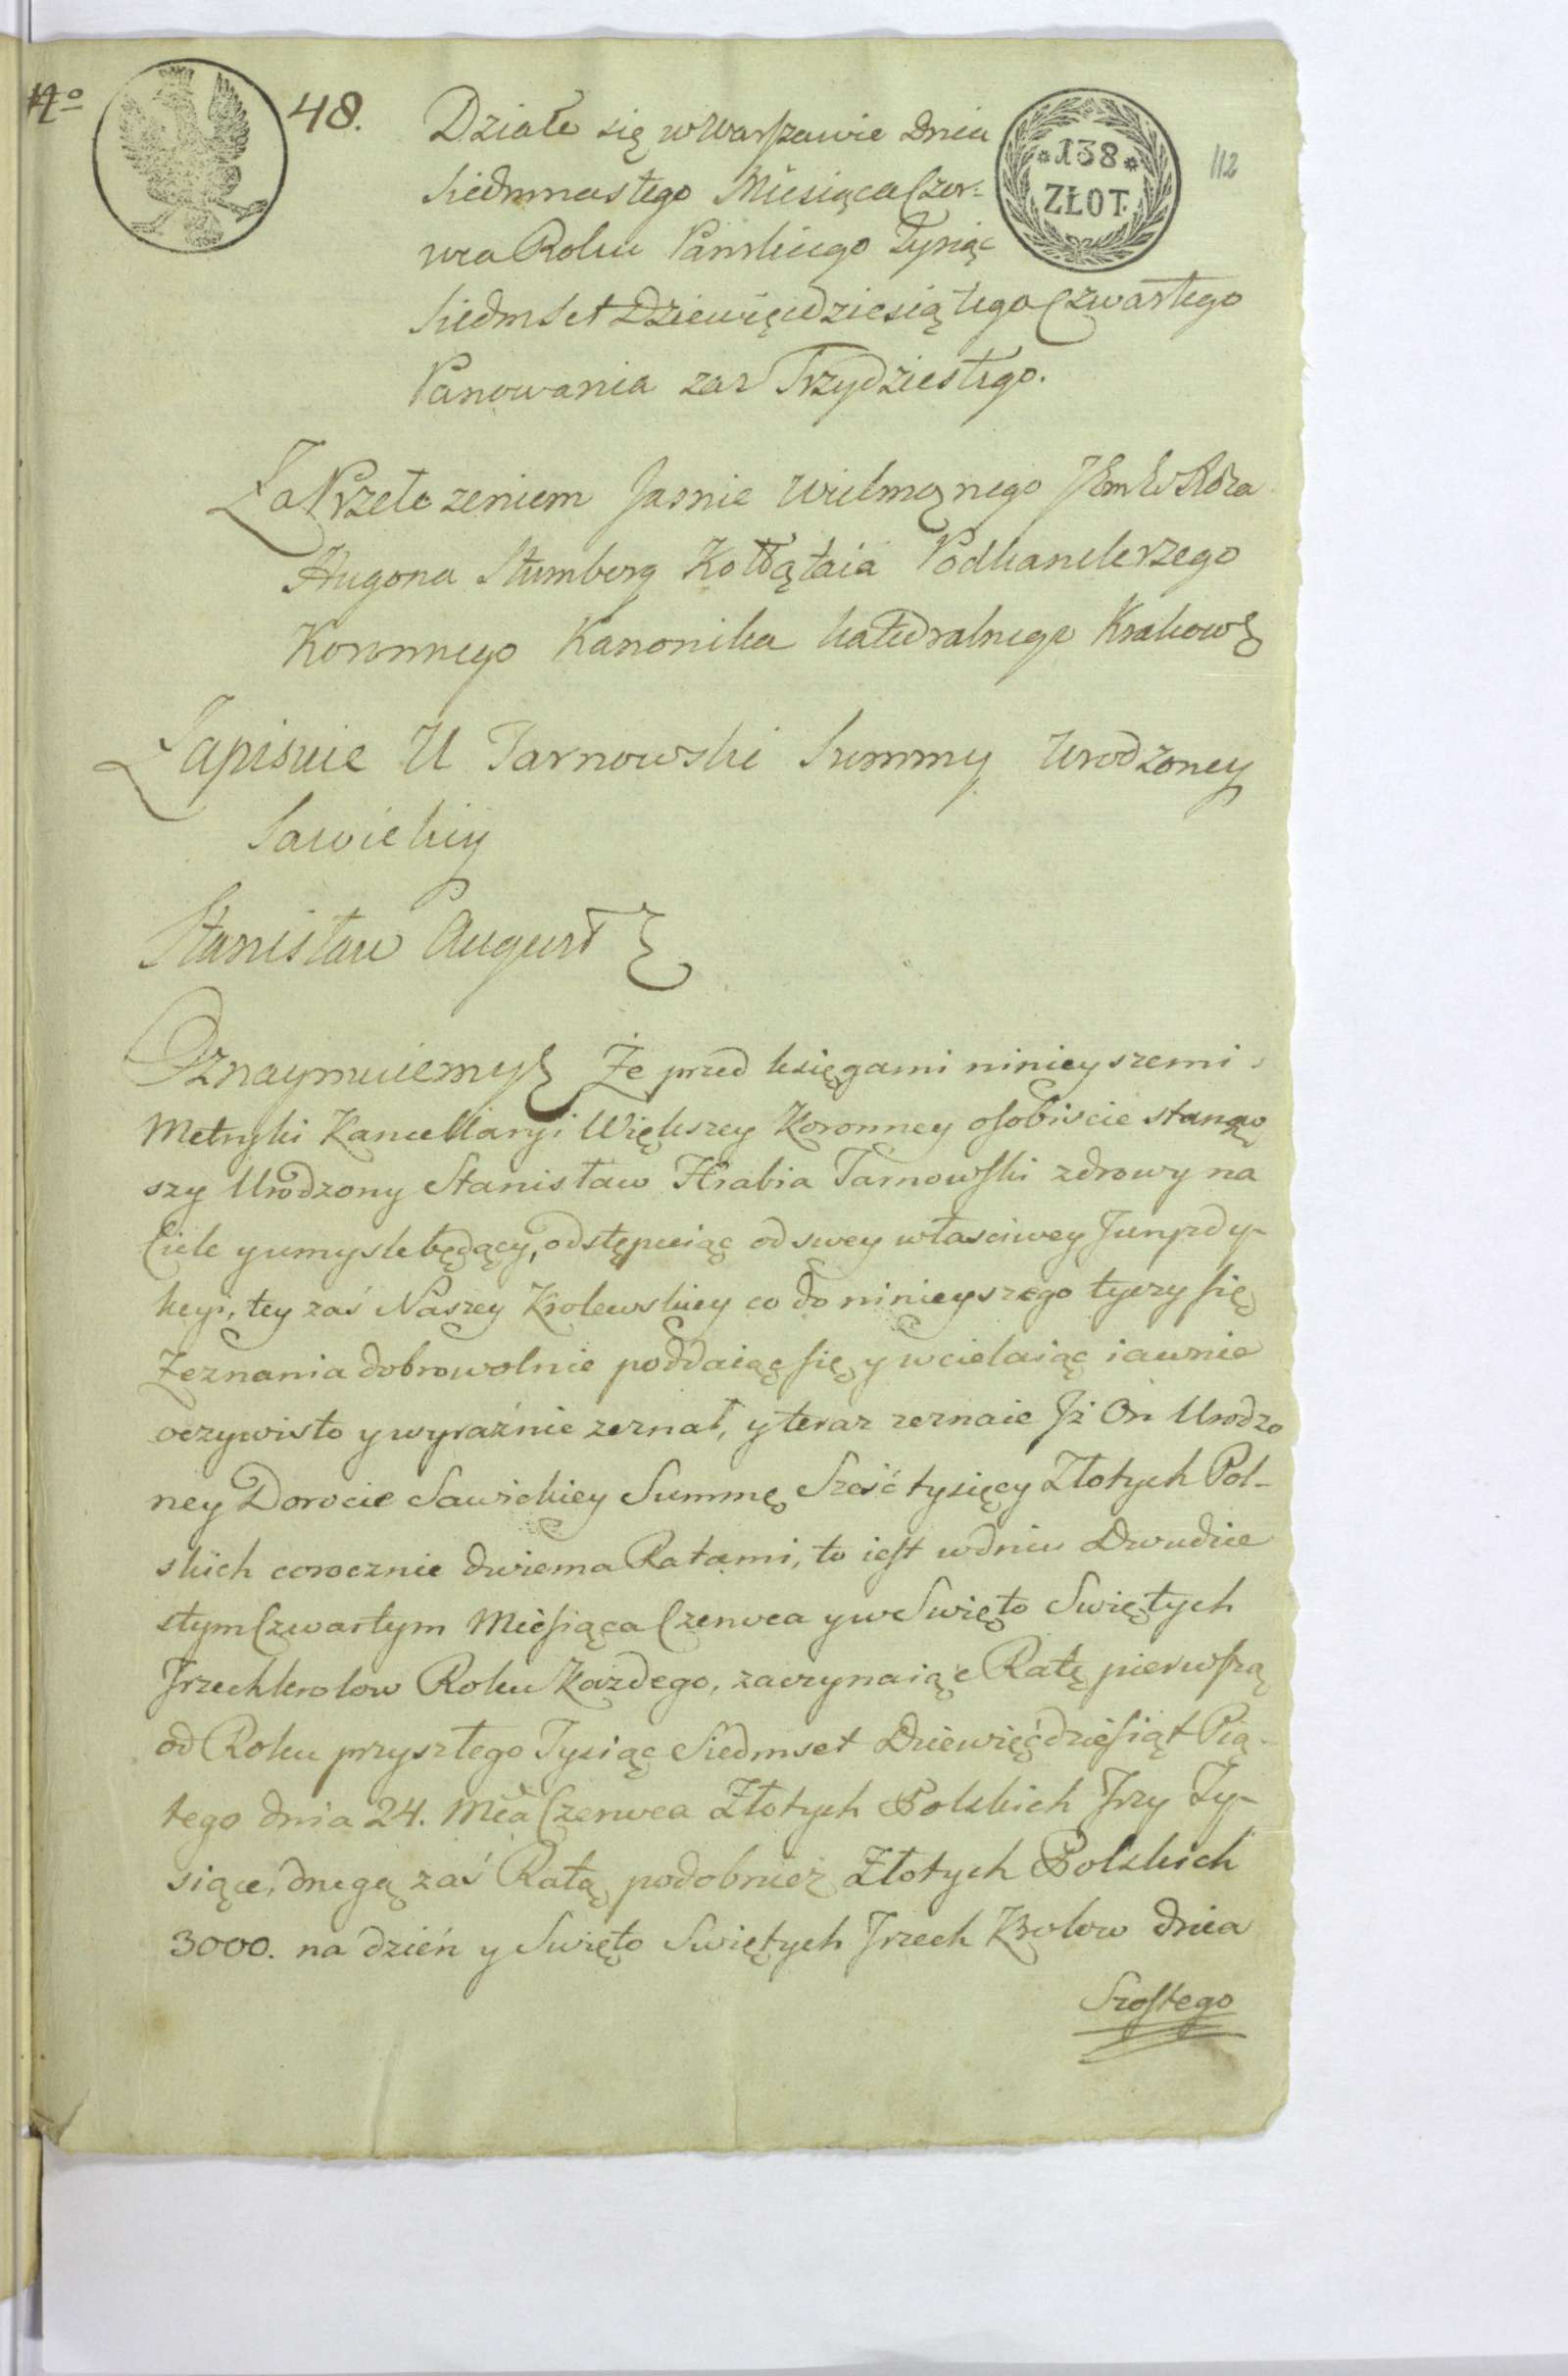 No 48.
138
ZŁOT.
112
Działo się w Warszawie Dnia
Siedmnastego Miesiąca Czer-
wca Roku Pańskiego Tysiąc
Siedmset Dziewięćdziesiątego Czwartego
Panowania zaś Trzydziestego.
Za Przełożeniem Jasnie Wielmożnego
Hugona Stumberg Kołłątaia Podkanclerzego
Koronnego Kanonika Katedralnego Krakow
Zapisuie U Tarnowski Summy Urodzoney
Sawickiy
Stanisław August
Oznaymuiemy Że przed księgami ninieyszemi
Metryki Kancellaryi Większey Koronney osobiscie stanąw
szy Urodzony Stanisław Hrabia Tarnowski zdrowy na
Ciele y umysle będący, odstępuiąc od swey własciwey Juryzdy-
kcyi, tey zaś Naszey Krolewskiey co do ninieyszego tyczy się
Zeznania dobrowolnie poddaiąc się y wcielaiąc iawnie
oczywisto y wyraźnie zeznał, y teraz zeznaie Jż On Urodzo
ney Dorocie Sawickiey Summę Sześć tysięcy Złotych Pol-
skich corocznie dwiema Ratami, to iest w dniu Dwudzie
stym Czwartym Miesiąca Czerwca y w Swięto Swiętych
Trzech krolow Roku Każdego, zaczynaiąc Ratę pierwszą
od Roku przyszłego Tysiąc Siedmset Dziewięćdziesiąt Pią-
tego dnia 24. Mca Czerwca Złotych Polskich Trzy Ty-
siące, drugą zaś Ratą podobnież Złotych Polskich
3000. na dzień y Swięto Swiętych Trzech Krolow dnia
Szostego